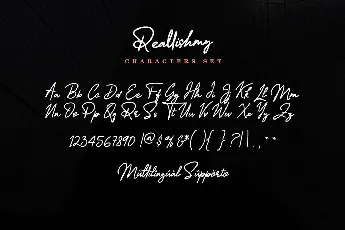 Reallishmy
CHARACTERS SET
Aa Bb Cc Dd Ee Ff Gg Hh Ii Jj Kk Ll Mm
Nn Oo Pp Qq Rr Ss Tt Uu Vv Ww Xx Yy Zz
1234567890 !@ $ % &*( ){ } ?/| . , " "
Multilingual Supports